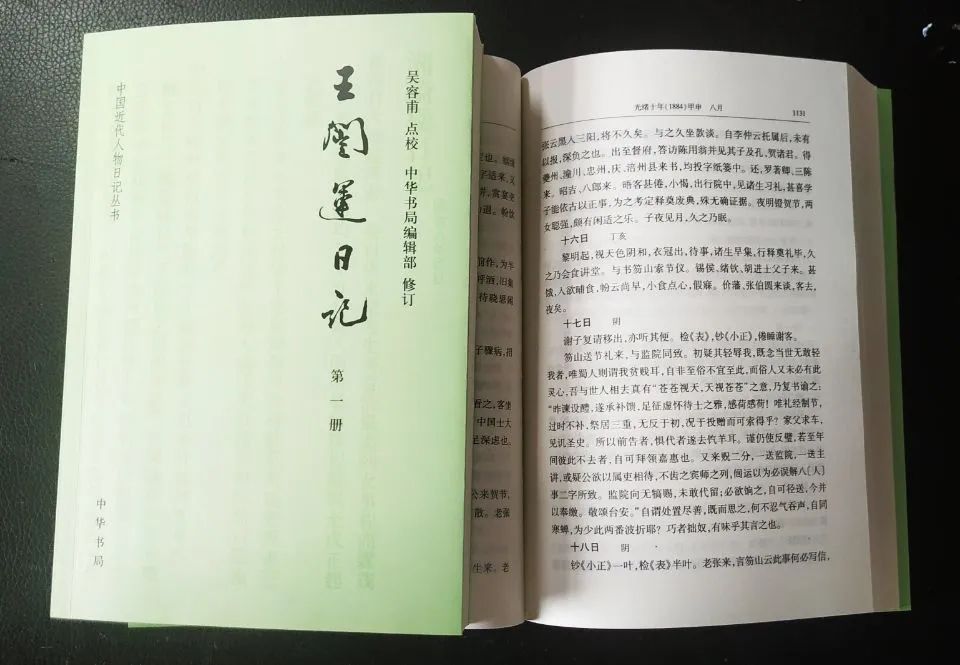 中国近代人物日记丛书
王闿运日记
吴容甫 点校 中华书局编辑部 修订
第一册
中华书局
光绪十年(1884)甲申 八月
1131
张云黑人三阳,将不久矣。与之久坐敦谈。自李仲云托属后,未有
以报,深负之也。出至督府,答访陈用翁并见其子及孔、贺诸君。得
夔州、潼川、忠州、庆、涪州县来书,均投字纸篓中。还,罗著卿、三陈
来。昭吉、八郎来。晤客甚倦,小惕,出行院中,见诸生习礼,甚喜学
子能依古以正事,为之考定释奠废典,殊无确证据。夜明镫贺节,两
女聪强,颇有闲适之乐。子夜见月,久之乃眠。
十六日 丁亥
黎明起,视天色阴和,衣冠出,待事,诸生早集,行释奠礼毕,久
之乃会食讲堂。与书笏山索节仪。锡侯、绪钦、胡进士父子来。甚
饿,人欲晡食,帉云尚早,小食点心,假寐。价藩、张伯圆来谈,客去,
夜矣。
十七日 阴
谢子复请移出,亦听其便。检《表》,钞《小正》,倦睡谢客。
笏山送节礼来,与监院同致。初疑其轻辱我,既念当世无敢轻
我者,唯蜀人则谓我贫贱耳,自非至俗不宜至此,而俗人又未必有此
灵心,吾与世人相去真有“苍苍视天,天视苍苍”之意,乃复书谕之:
“昨谏设醴,遂承补馈,足征虚怀待士之雅,感荷感荷!唯礼经制节,
过时不补,祭居三重,无反于初,况于投赠而可索得乎?家父求车,
见讥圣史。所以前告者,惧代者遂去饩羊耳。谨仍使反璧,若至年
间彼此不去者,自可拜领嘉惠也。又来贶二分,一送监院,一送主
讲,或疑公欲以属吏相待,不齿之宾师之列,闿运以为必误解八〔人〕
事二字所致。监院向无犒赐,未敢代留;必欲饷之,自可径送,今并
以奉缴。敬颂台安。”自谓处置尽善,既而思之,何不忍气吞声,自同
寒蝉,为少此两番波折耶?巧者拙奴,有味乎其言之也。
十八日 阴
钞《小正》一叶,检《表》半叶。老张来,言笏山云此事何必写信,